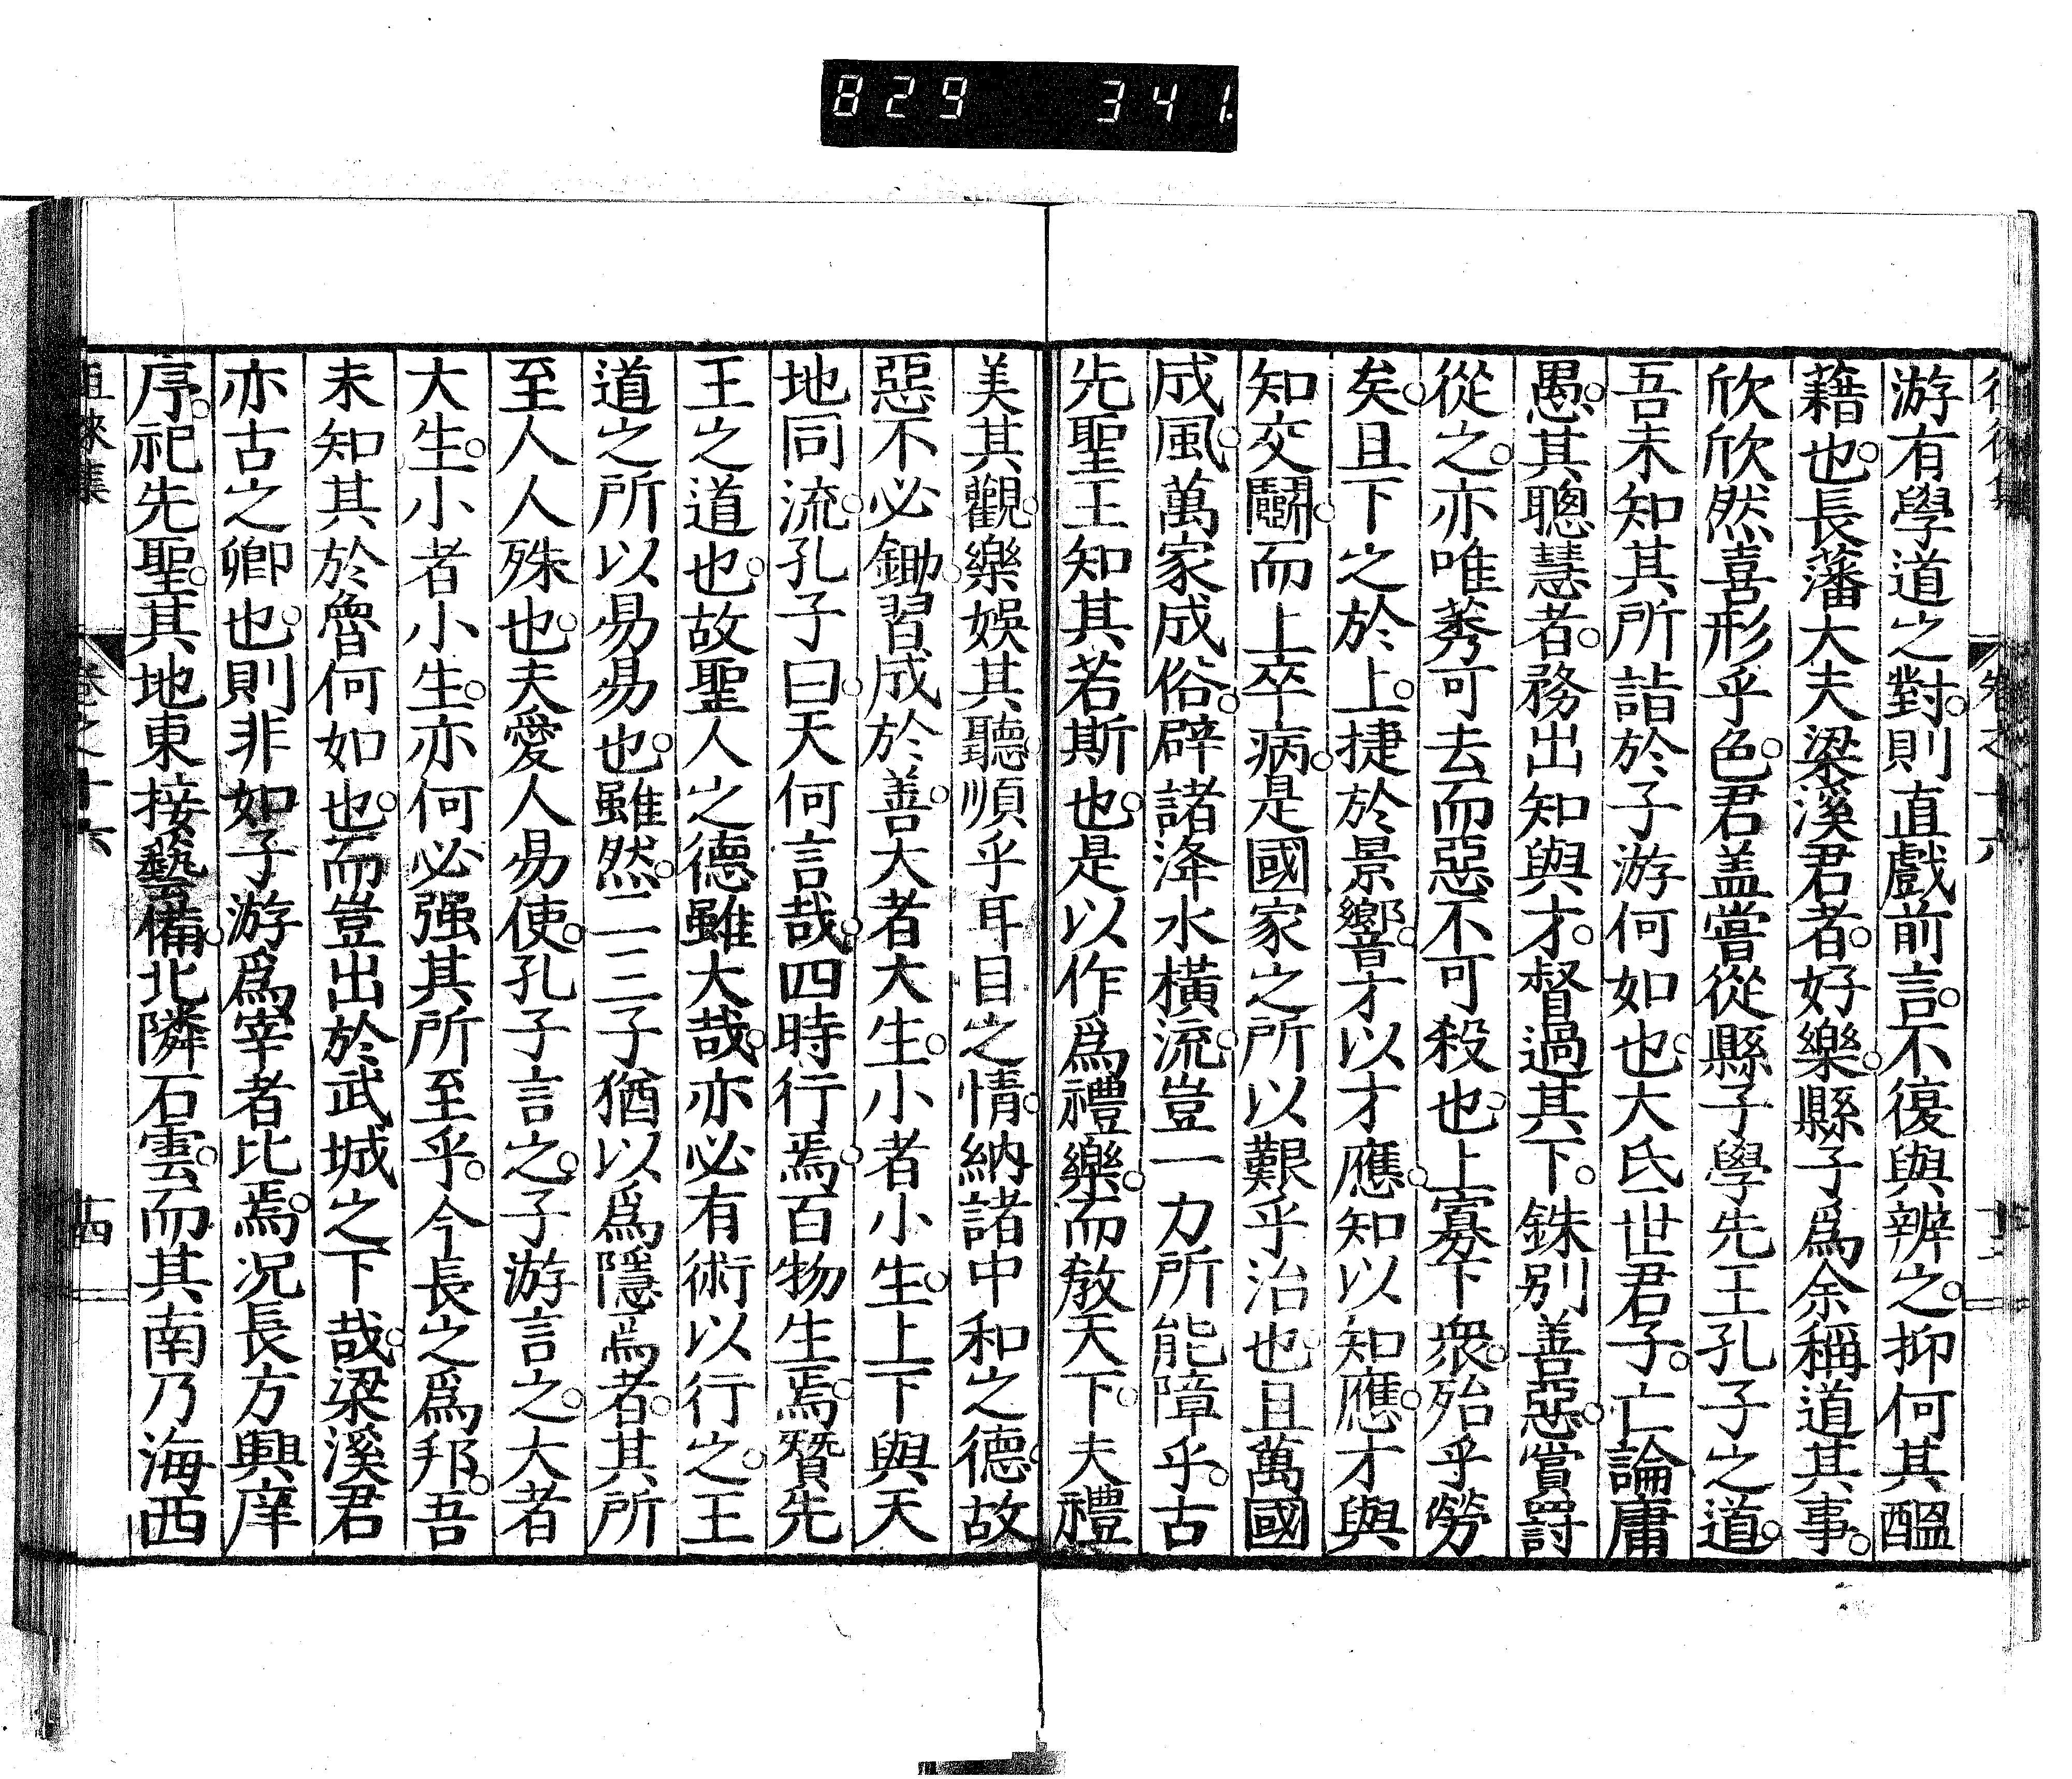 829 341
游有學道之對。則直戲前言。不復與辨之。抑何其醞
藉也。長藩大夫梁溪君者。好樂。縣子爲余稱道其事。
欣欣然喜形乎色。君盖嘗從縣子學先王孔子之道。
吾未知其所詣於子游何如也。大氐世君子。亡論庸
愚。其聰慧者。務出知與才。督過其下。銖別善惡。賞罰
從之。亦唯莠可去而惡不可殺也。上寡下衆。殆乎勞
矣。且下之於上。捷於景響。才以才應。知以知應。才與
知交鬭。而上卒病。是國家之所以艱乎治也。且萬國
成風。萬家成俗。辟諸洚水橫流。豈一力所能障乎。古
先聖王知其若斯也。是以作爲禮樂。而敎天下。夫禮
美其觀。樂娛其聽。順乎耳目之情。納諸中和之德。故
惡不必鋤。習成於善。大者大生。小者小生。上下與天
地同流。孔子曰。天何言哉。四時行焉。百物生焉。贊先
王之道也。故聖人之德雖大哉。亦必有術以行之。王
道之所以易易也。雖然。二三子猶以爲隱焉者。其所
至人人殊也。夫愛人易使。孔子言之。子游言之。大者
大生。小者小生。亦何必强其所至乎。今長之爲邦。吾
未知其於魯何如也。而豈出於武城之下哉。梁溪君
亦古之卿也。則非如子游爲宰者比焉。況長方興庠
序。祀先聖。其地東接藝備。北隣石雲。而其南乃海西
卷之十六
十四